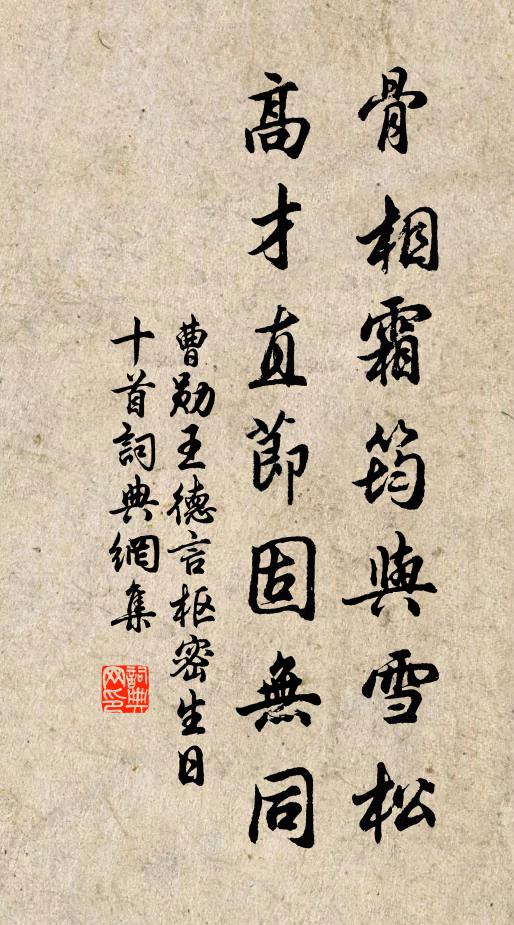 骨相霜筠與雪松
高才直節固無同
曹勛王德言枢密生日
十首詞典網集
詞典网印